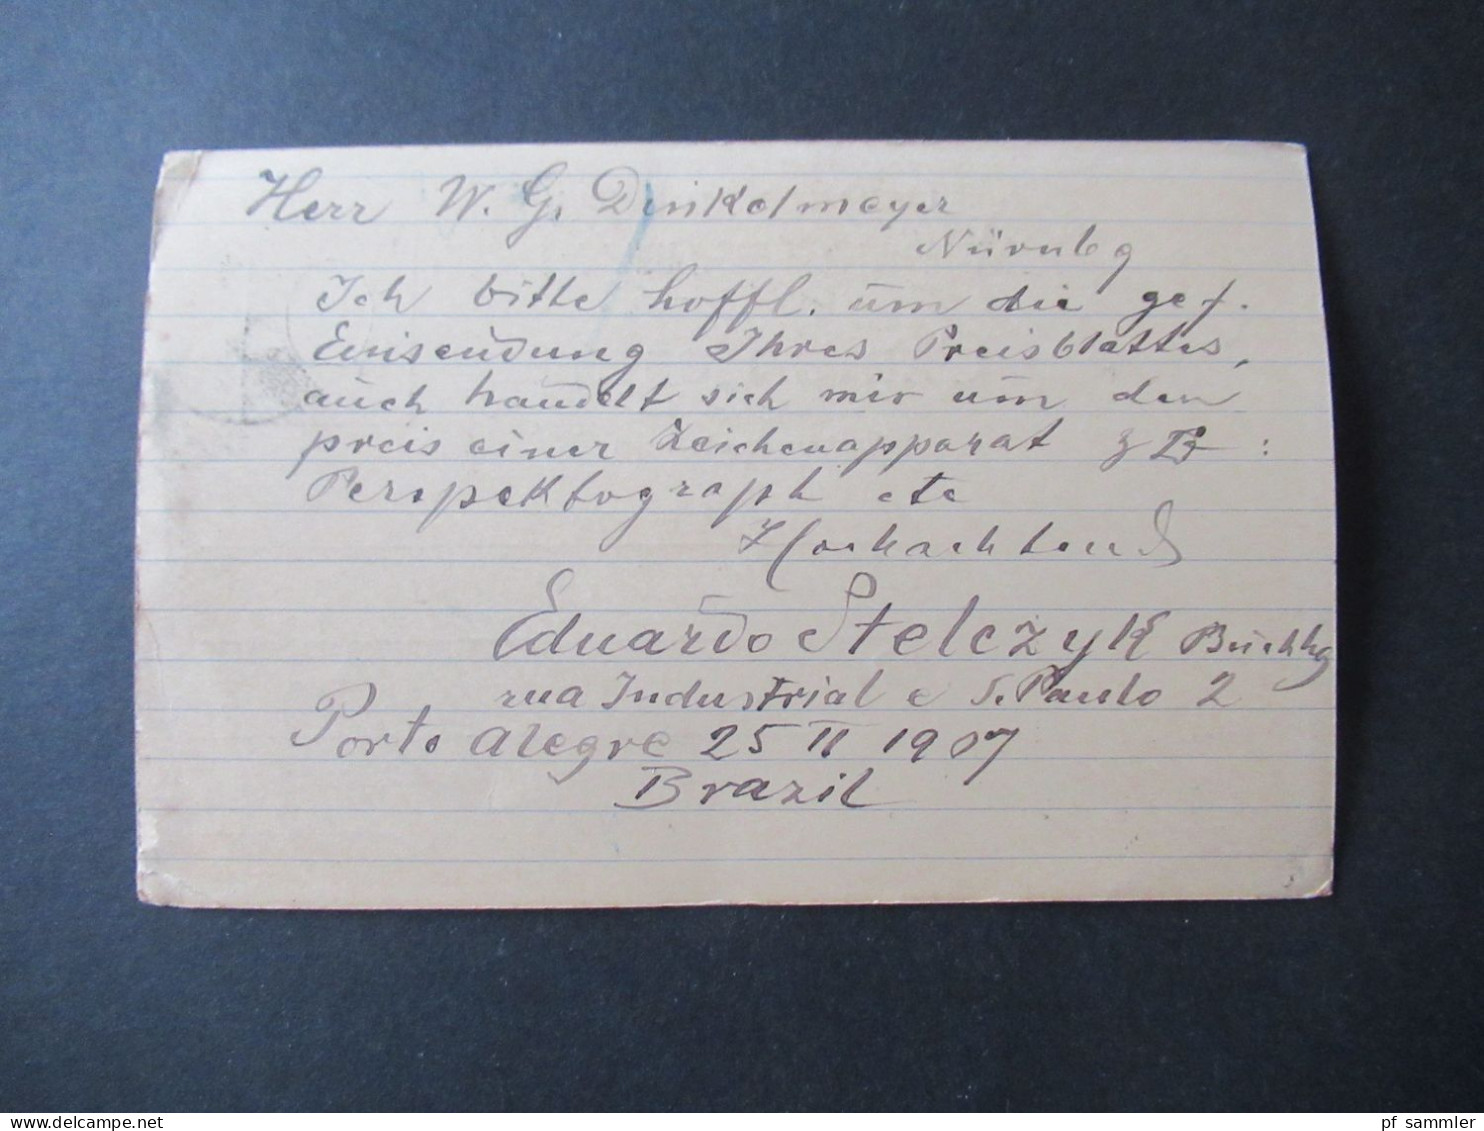 Herr W. G. Dinkelmeyer
Nürnbg
Ich bitte höffl. um die gef.
Einsendung Ihres Preisblattes,
auch handelt sich mir um den
preis einer Zeichenapparat z B :
Perspektograph etc
Hochachtend
Eduardo Stelczyk Buchhg
rua Industrial e S. Paulo 2
Porto Alegre 25 II 1907
Brazil
pf_sammler
www.delcampe.net